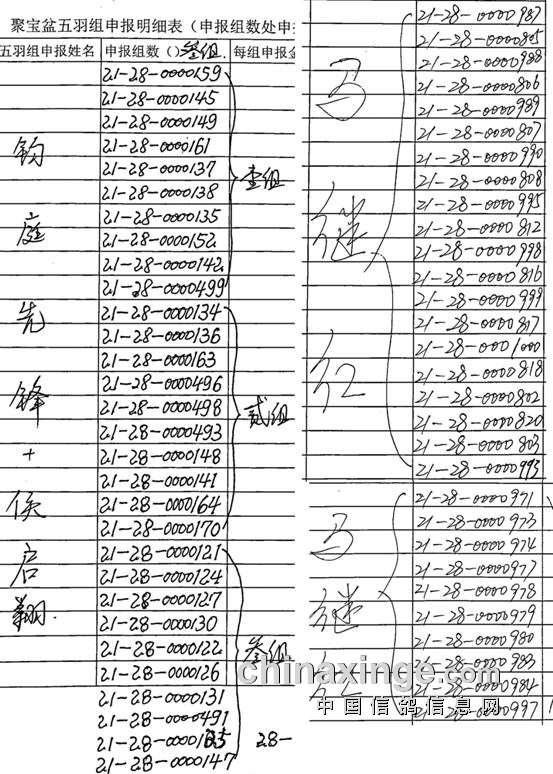 聚宝盆五羽组申报明细表（申报组数处申
五羽组申报姓名 申报组数（）叁组. 每组申报金
21-28-0000159
21-28-0000145
21-28-0000149
21-28-0000161
21-28-0000137
21-28-0000138
21-28-0000135
21-28-0000152
21-28-0000142
21-28-0000499
壹组
21-28-0000134
21-28-0000136
21-28-0000163
21-28-0000496
21-28-0000498
21-28-0000493
21-28-0000148
21-28-0000141
21-28-0000164
21-28-0000170
贰组
21-28-0000121
21-28-0000124
21-28-0000127
21-28-0000130
21-28-0000122
21-28-0000126
21-28-0000131
21-28-0000491
21-28-0000165 28-
21-28-0000147
叁组
钧
庭
先
锋
+
侯
启
翔.
21-28-0000987
21-28-0000805
21-28-0000988
21-28-0000806
21-28-0000989
21-28-0000807
21-28-0000990
21-28-0000808
21-28-0000995
21-28-0000812
21-28-0000998
21-28-0000816
21-28-0000999
21-28-0000817
21-28-0001000
21-28-0000818
21-28-0000802
21-28-0000820
21-28-0000803
21-28-0000993
马
继
红
21-28-0000971
21-28-0000973
21-28-0000974
21-28-0000977
21-28-0000978
21-28-0000979
21-28-0000980
21-28-0000983
21-28-0000984
21-28-0000997
马
继
红
chinaxinge.com
中国信鸽信息网